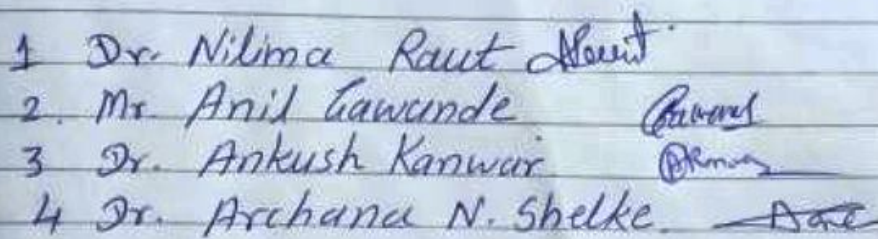 1 Dr. Nilima Raut
2. Mr. Anil Gawande
3 Dr. Ankush Kanwar
4 Dr. Archana N. Shelke.